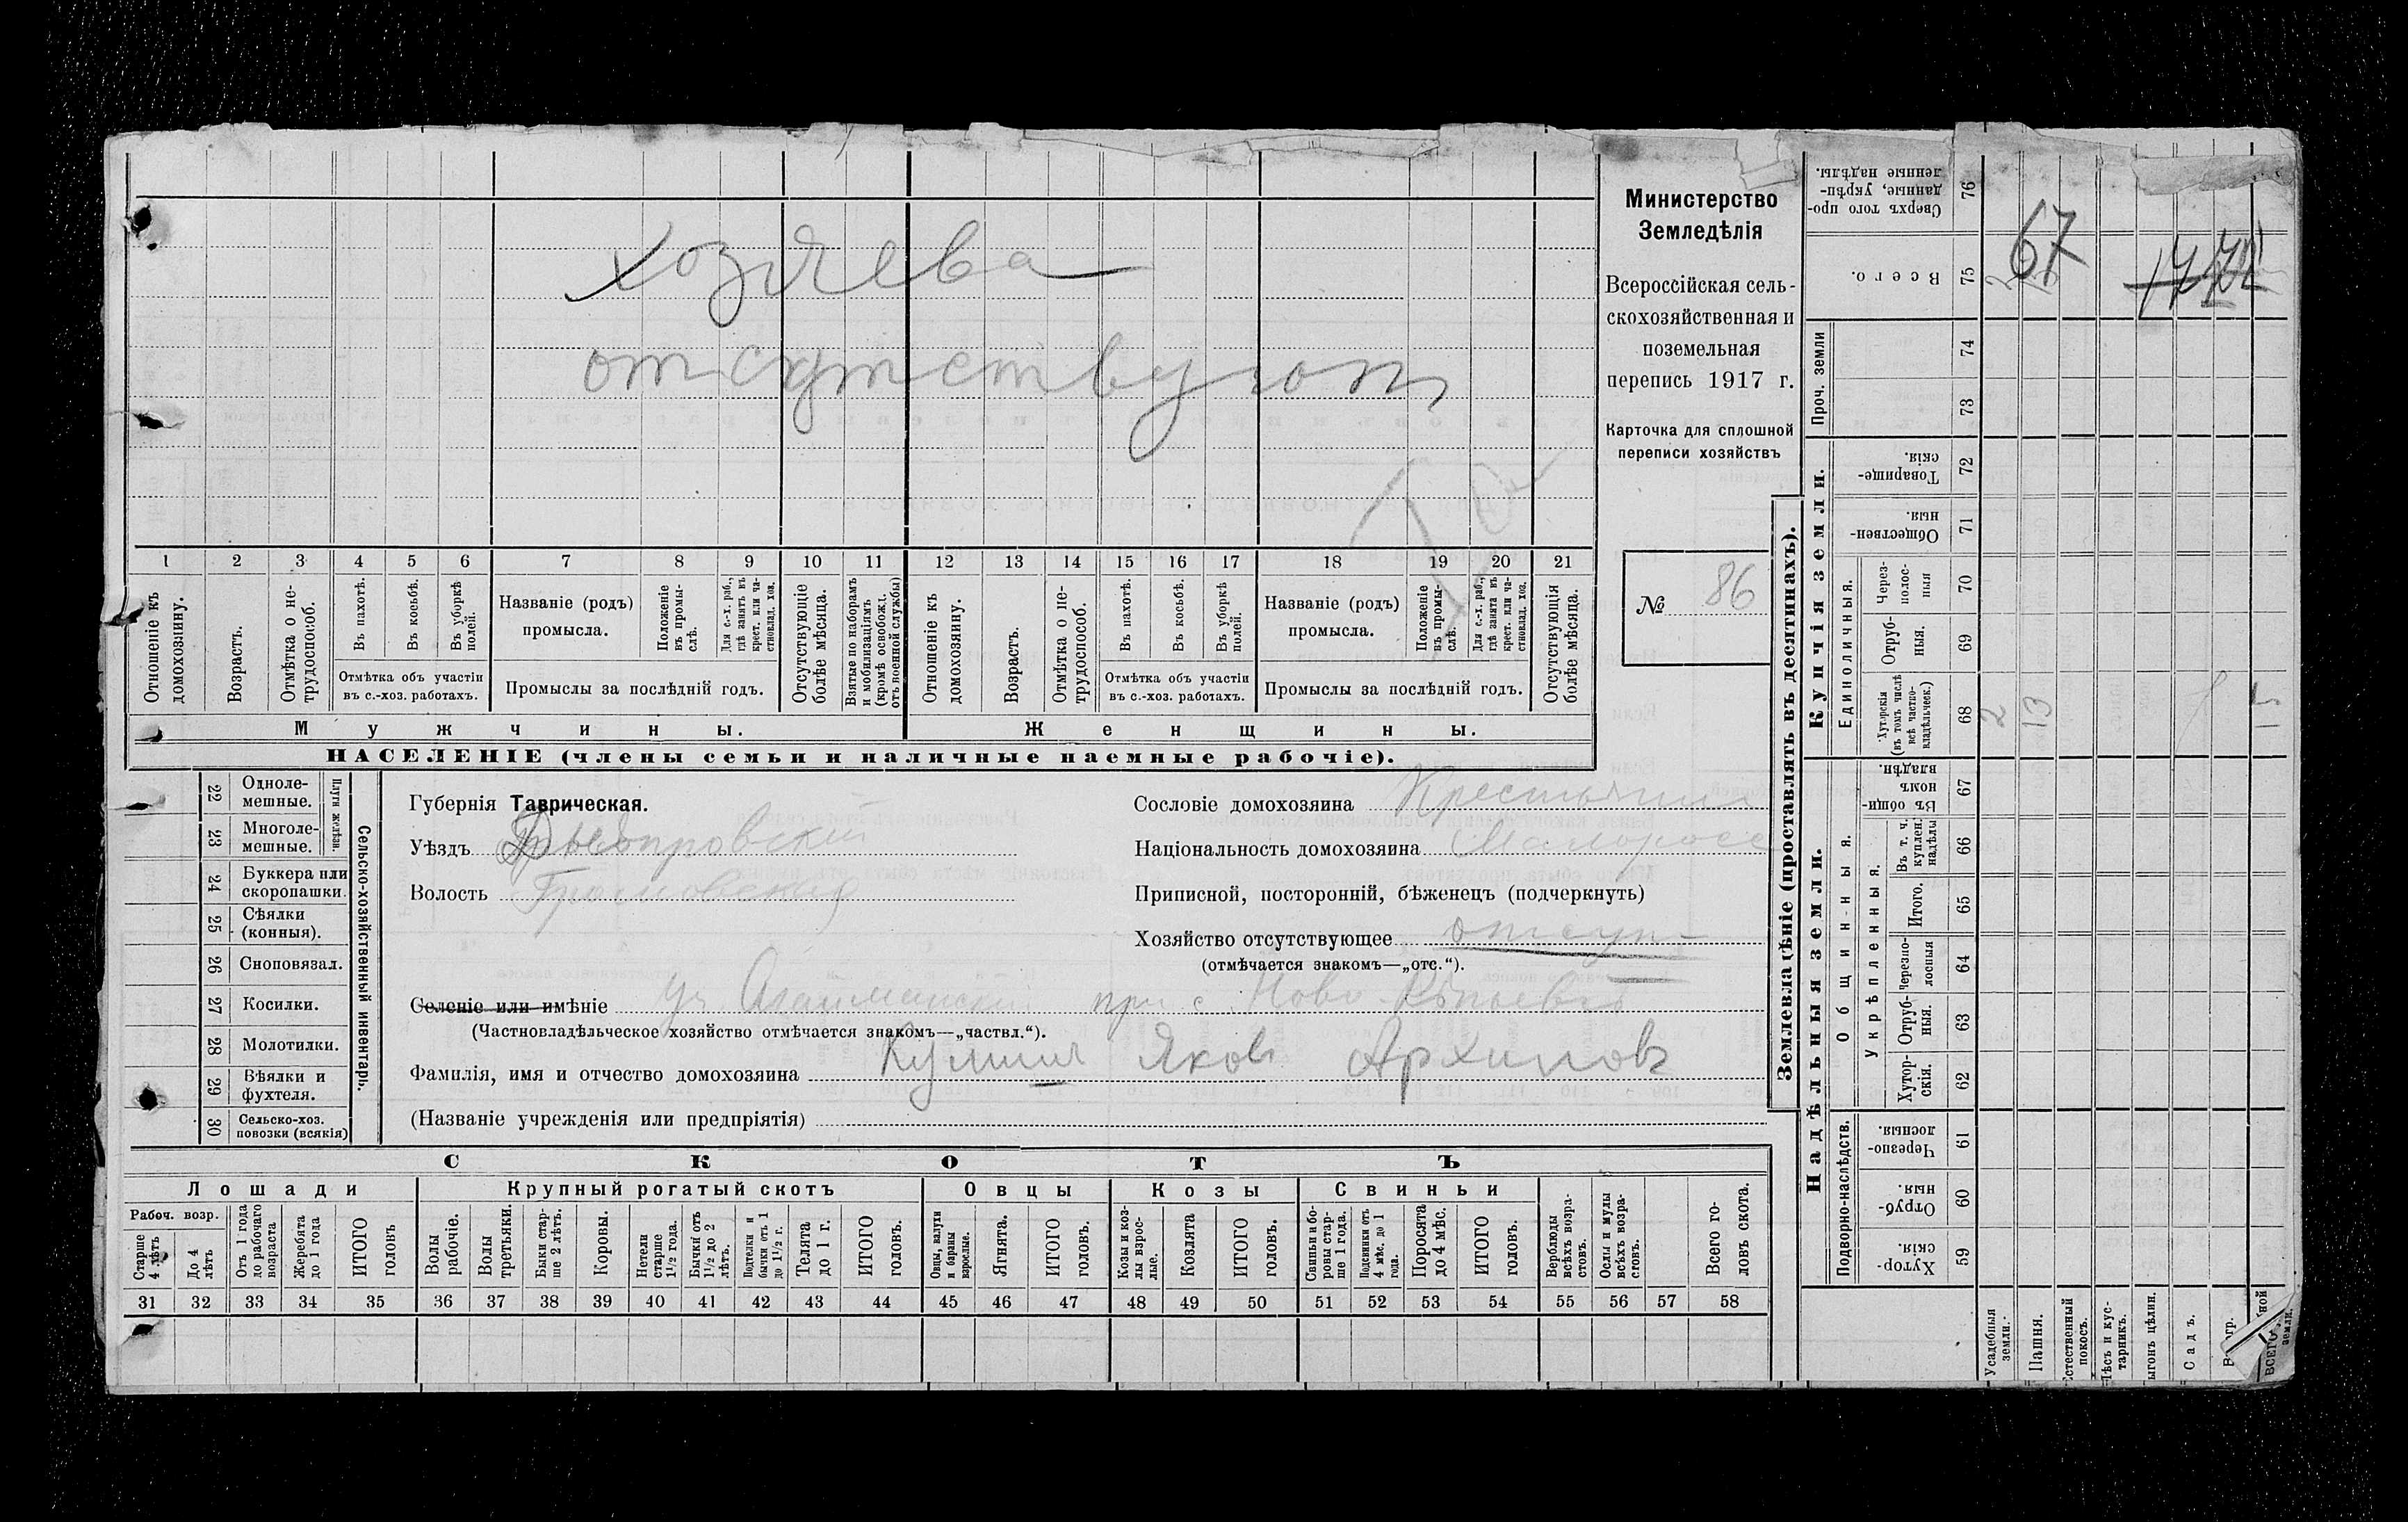 хозяева
отсутствуют
1 2 3 4 5 6 7 8 9 10 11 12 13 14 15 16 17 18 19 20 21
Отношеніе къ домохозяину.
Возрастъ.
Отмѣтка о не-трудоспособ.
Въ пахотѣ.
Въ косьбѣ.
Въ уборкѣ полей.
Отмѣтка объ участіи
въ с.-хоз. работахъ.
Названіе (родъ)
промысла.
Положеніе въ промы-слѣ.
Для с.-х. раб., гдѣ занятъ въ крест. или ча-стновлад. хоз.
Промыслы за послѣдній годъ.
Отсутствующіе болѣе мѣсяца.
Взятые по наборамъ и мобилизаціямъ (кромѣ освобожд. отъ военной службы)
Отношеніе къ домохозяину.
Возрастъ.
Отмѣтка о не-трудоспособ.
Въ пахотѣ.
Въ косьбѣ.
Въ уборкѣ полей.
Отмѣтка объ участіи
въ с.-хоз. работахъ.
Названіе (родъ)
промысла.
Положеніе въ промы-слѣ.
Для с.-х. раб., гдѣ занята въ крест. или ча-стновлад. хоз.
Промыслы за послѣдній годъ.
Отсутствующія болѣе мѣсяца.
Мужчины.
Женщины.
НАСЕЛЕНІЕ (члены семьи и наличные наемные рабочіе).
Министерство
Земледѣлія
Всероссійская сель-
скохозяйственная и
поземельная
перепись 1917 г.
Карточка для сплошной
переписи хозяйствъ
№ 86
22 Одноле-мешные.
23 Многоле-мешные.
Плуги желѣзн.
24 Буккера или скоропашки.
25 Сѣялки (конныя).
26 Сноповязал.
27 Косилки.
28 Молотилки.
29 Вѣялки и фухтеля.
30 Сельско-хоз. повозки (всякія)
Сельско-хозяйственный инвентарь.
Губернія Таврическая.
Уѣздъ Днѣпровскій
Волость Громовская
Сословіе домохозяина Крестьянин
Національность домохозяина Малоросс
Приписной, посторонній, бѣженецъ (подчеркнуть)
Хозяйство отсутствующее отсут
(отмѣчается знакомъ—„отс.“).
Селеніе или имѣніе уч. Агайманский при с. Ново-Рѣпьевкѣ
(Частновладѣльческое хозяйство отмѣчается знакомъ—„частвл.“).
Фамилія, имя и отчество домохозяина Яков Архипов
(Названіе учрежденія или предпріятія)
СКОТЪ
Лошади
Крупный рогатый скотъ
Овцы
Козы
Свиньи
Рабоч. возр.
Старше 4 лѣтъ
До 4 лѣтъ
Отъ 1 года до рабочаго возраста
Жеребята до 1 года
ИТОГО головъ
Волы рабочіе.
Волы третьяки.
Быки стар-ше 2 лѣтъ.
Коровы.
Нетели старше 1½ года.
Бычки отъ 1½ до 2 лѣтъ.
Подтелки и бычки отъ 1 до 1½ г.
Телята до 1 г.
ИТОГО головъ.
Овцы, валухи и бараны взрослые.
Ягнята.
ИТОГО головъ.
Козы и коз-лы взрос-лые.
Козлята
ИТОГО головъ.
Свиньи и бо-ровы стар-ше 1 года.
Подсвинки отъ 4 мѣс. до 1 года.
Поросята до 4 мѣс.
ИТОГО головъ.
Верблюды всѣхъ возра-стовъ.
Ослы и мулы всѣхъ возра-стовъ.
Всего го-ловъ скота.
31 32 33 34 35 36 37 38 39 40 41 42 43 44 45 46 47 48 49 50 51 52 53 54 55 56 57 58
Землевладѣніе (проставлять въ десятинахъ).
Сверхъ того про-данные, укрѣп-ленные надѣлы. 76
Всего. 75
67
Проч. земли
74
73
Купчія земли.
Товарище-скія. 72
Обществен-ныя. 71
Единоличныя.
Через-полос-ныя 70
Отруб-ныя. 69
Хуторскія (въ томъ числѣ всѣ частно-владѣльческ.) 68
2 13 15
Надѣльныя земли.
Общинныя.
Въ общин-номъ владѣн. 67
Укрѣпленныя.
Въ т. ч. куплен. надѣлы 66
Итого. 65
Черезпо-лосныя 64
Отруб-ныя. 63
Хутор-скія. 62
Подворно-наслѣдств.
Черезпо-лосныя. 61
Отруб-ныя. 60
Хутор-скія. 59
Усадебныя земли.
Пашня.
Естественный покосъ.
Лѣсъ и кус-тарникъ.
Выгонъ цѣлин.
Садъ.
ВСЕГО
земли.